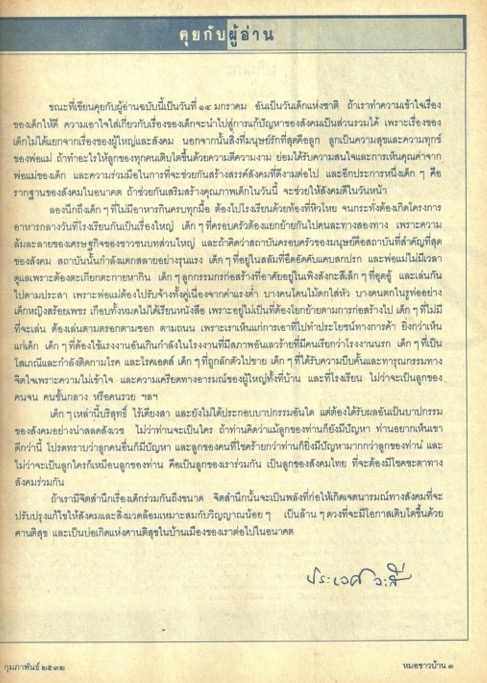 คุยกับผู้อ่าน
ขณะที่เขียนคุยกับผู้อ่านฉบับนี้เป็นวันที่ ๑๔ มกราคม อันเป็นวันเด็กแห่งชาติ ถ้าเราทำความเข้าใจเรื่อง
ของเด็กให้ดี ความเอาใจใส่เกี่ยวกับเรื่องของเด็กจะนำไปสู่การแก้ปัญหาของสังคมเป็นส่วนรวมได้ เพราะเรื่องของ
เด็กไม่ได้แยกจากเรื่องของผู้ใหญ่และสังคม นอกจากนั้นสิ่งที่มนุษย์รักที่สุดคือลูก ลูกเป็นความสุขและความทุกข์
ของพ่อแม่ ถ้าทำอะไรให้ลูกของทุกคนเติบโตขึ้นด้วยความดีความงาม ย่อมได้รับความสนใจและการเห็นคุณค่าจาก
พ่อแม่ของเด็ก และความร่วมมือในการที่จะช่วยกันสร้างสรรค์สังคมที่ดีงามต่อไป และอีกประการหนึ่งเด็ก ๆ คือ
รากฐานของสังคมในอนาคต ถ้าช่วยกันเสริมสร้างคุณภาพเด็กในวันนี้ จะช่วยให้สังคมดีในวันหน้า
ลองนึกถึงเด็ก ๆ ที่ไม่มีอาหารกินครบทุกมื้อ ต้องไปโรงเรียนด้วยท้องที่หิวโหย จนกระทั่งต้องเกิดโครงการ
อาหารกลางวันที่โรงเรียนกันเป็นเรื่องใหญ่ เด็ก ๆ ที่ครอบครัวต้องแยกย้ายกันไปคนละทางสองทาง เพราะความ
ล้มละลายของเศรษฐกิจของชาวชนบทส่วนใหญ่ และถ้าคิดว่าสถาบันครอบครัวของมนุษย์คือสถาบันที่สำคัญที่สุด
ของสังคม สถาบันนั้นกำลังแตกสลายอย่างรุนแรง เด็ก ๆ ที่อยู่ในสลัมที่ยัดอัดคับแคบสกปรก และพ่อแม่ไม่มีเวลา
ดูแลเพราะต้องตะเกียกตะกายหากิน เด็ก ๆ ลูกกรรมกรก่อสร้างที่อาศัยอยู่ในเพิงสังกะสีเล็ก ๆ ที่อุดอู้ และเล่นกัน
ไปตามประสา เพราะพ่อแม่ต้องไปรับจ้างทั้งคู่เนื่องจากค่าแรงต่ำ บางคนโดนไม้ตกใส่หัว บางคนตกในรูท่ออย่าง
เด็กหญิงสร้อยเพชร เกือบทั้งหมดไม่ได้เรียนหนังสือ เพราะอยู่ไม่เป็นที่ต้องโยกย้ายตามการก่อสร้างไป เด็ก ๆ ที่ไม่มี
ที่จะเล่น ต้องเล่นตามตรอกตามซอก ตามถนน เพราะเราเห็นแก่การเอาที่ไปทำประโยชน์ทางการค้า ยิ่งกว่าเห็น
แก่เด็ก เด็ก ๆ ที่ต้องใช้แรงงานอันเกินกำลังในโรงงานที่มีสภาพอันเลวร้ายที่มีคนเรียกว่าโรงงานนรก เด็ก ๆ ที่เป็น
โสเภณีและกำลังติดกามโรค และโรคเอดส์ เด็ก ๆ ที่ถูกลักตัวไปขาย เด็ก ๆ ที่ได้รับความบีบคั้นและทารุณกรรมทาง
จิตใจเพราะความไม่เข้าใจ และความเครียดทางอารมณ์ของผู้ใหญ่ทั้งที่บ้าน และที่โรงเรียน ไม่ว่าจะเป็นลูกของ
คนจน คนชั้นกลาง หรือคนรวย ฯลฯ
เด็ก ๆ เหล่านี้บริสุทธิ์ ไร้เดียงสา และยังไม่ได้ประกอบบาปกรรมอันใด แต่ต้องได้รับผลอันเป็นบาปกรรม
ของสังคมอย่างน่าสลดสังเวช ไม่ว่าท่านจะเป็นใคร ถ้าท่านคิดว่าแม้ลูกของท่านก็ยังมีปัญหา ท่านอยากเห็นเขา
ดีกว่านี้ โปรดทราบว่าลูกคนอื่นก็มีปัญหา และลูกของคนที่โชคร้ายกว่าท่านก็ยิ่งมีปัญหามากกว่าลูกของท่าน และ
ไม่ว่าจะเป็นลูกใครก็เหมือนลูกของท่าน คือเป็นลูกของเราร่วมกัน เป็นลูกของสังคมไทย ที่จะต้องมีโชคชะตาทาง
สังคมร่วมกัน
ถ้าเรามีจิตสำนึกเรื่องเด็กร่วมกันถึงขนาด จิตสำนึกนั้นจะเป็นพลังที่ก่อให้เกิดเจตนารมณ์ทางสังคมที่จะ
ปรับปรุงแก้ไขให้สังคมและสิ่งแวดล้อมเหมาะสมกับวิญญาณน้อย ๆ เป็นล้าน ๆ ดวงที่จะมีโอกาสเติบโตขึ้นด้วย
ศานติสุข และเป็นบ่อเกิดแห่งศานติสุขในบ้านเมืองของเราต่อไปในอนาคต
ประเวศ วะสี
กุมภาพันธ์ ๒๕๓๒
หมอชาวบ้าน ๓